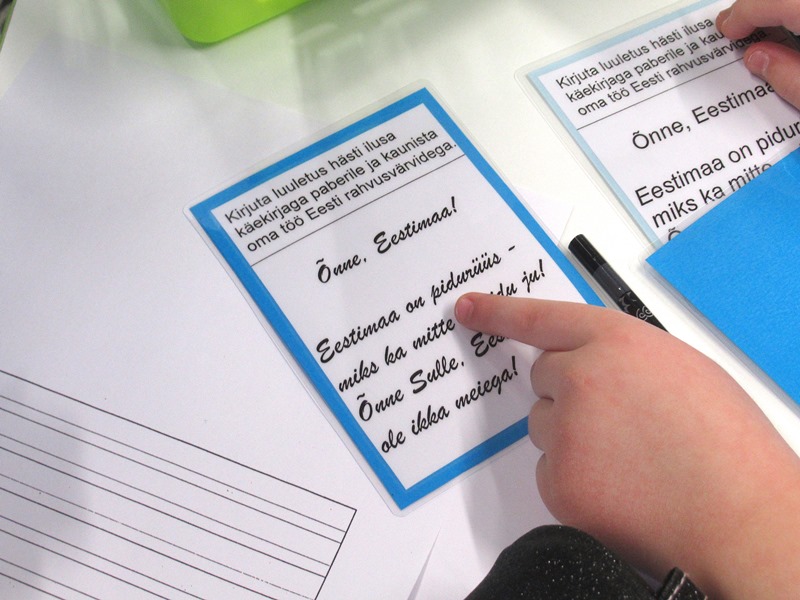 Kirjuta luuletus hästi ilusa
käekirjaga paberile ja kaunista
oma töö Eesti rahvusvärvidega.
Õnne, Eestimaa!
Eestimaa on pidurüüs -
miks ka mitte ju!
Õnne Sulle,
ole ikka meiega!
Kirjuta luuletus hästi ilusa
käekirjaga paberile ja
oma töö Eesti rahvusvärvidega.
Õnne, Eestimaa
Eestimaa on
miks ka mitte